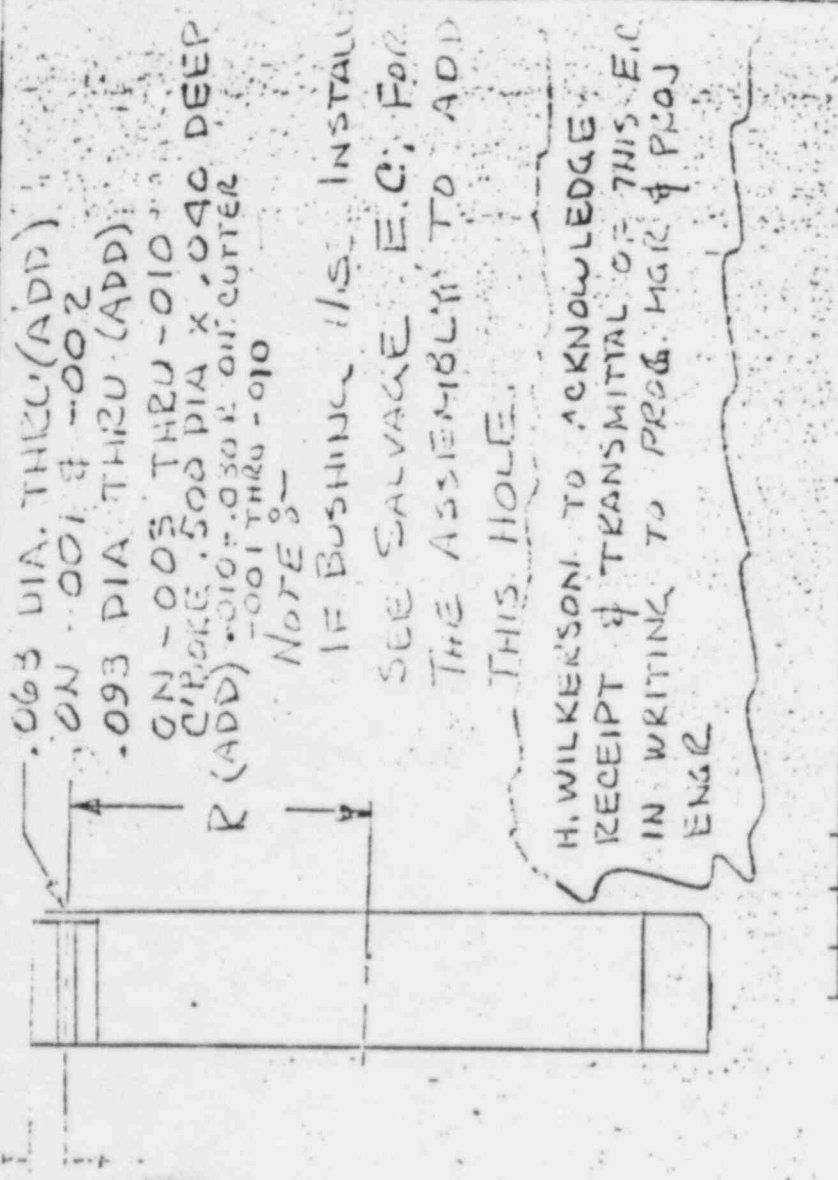 .063 DIA. THRU (ADD)
ON -001 & -002
.093 DIA THRU (ADD)
ON -003 THRU -010
C'BORE .500 DIA X .040 DEEP
(ADD) .010-.030 R ON CUTTER
-001 THRU -010
R
NOTE:-
IF BUSHING IS INSTALL
SEE SALVAGE E.C. FOR
THE ASSEMBLY TO ADD
THIS HOLE.
H. WILKERSON TO ACKNOWLEDGE
RECEIPT & TRANSMITTAL OF THIS E.C
IN WRITING TO PROG. MGR & PROJ
ENGR